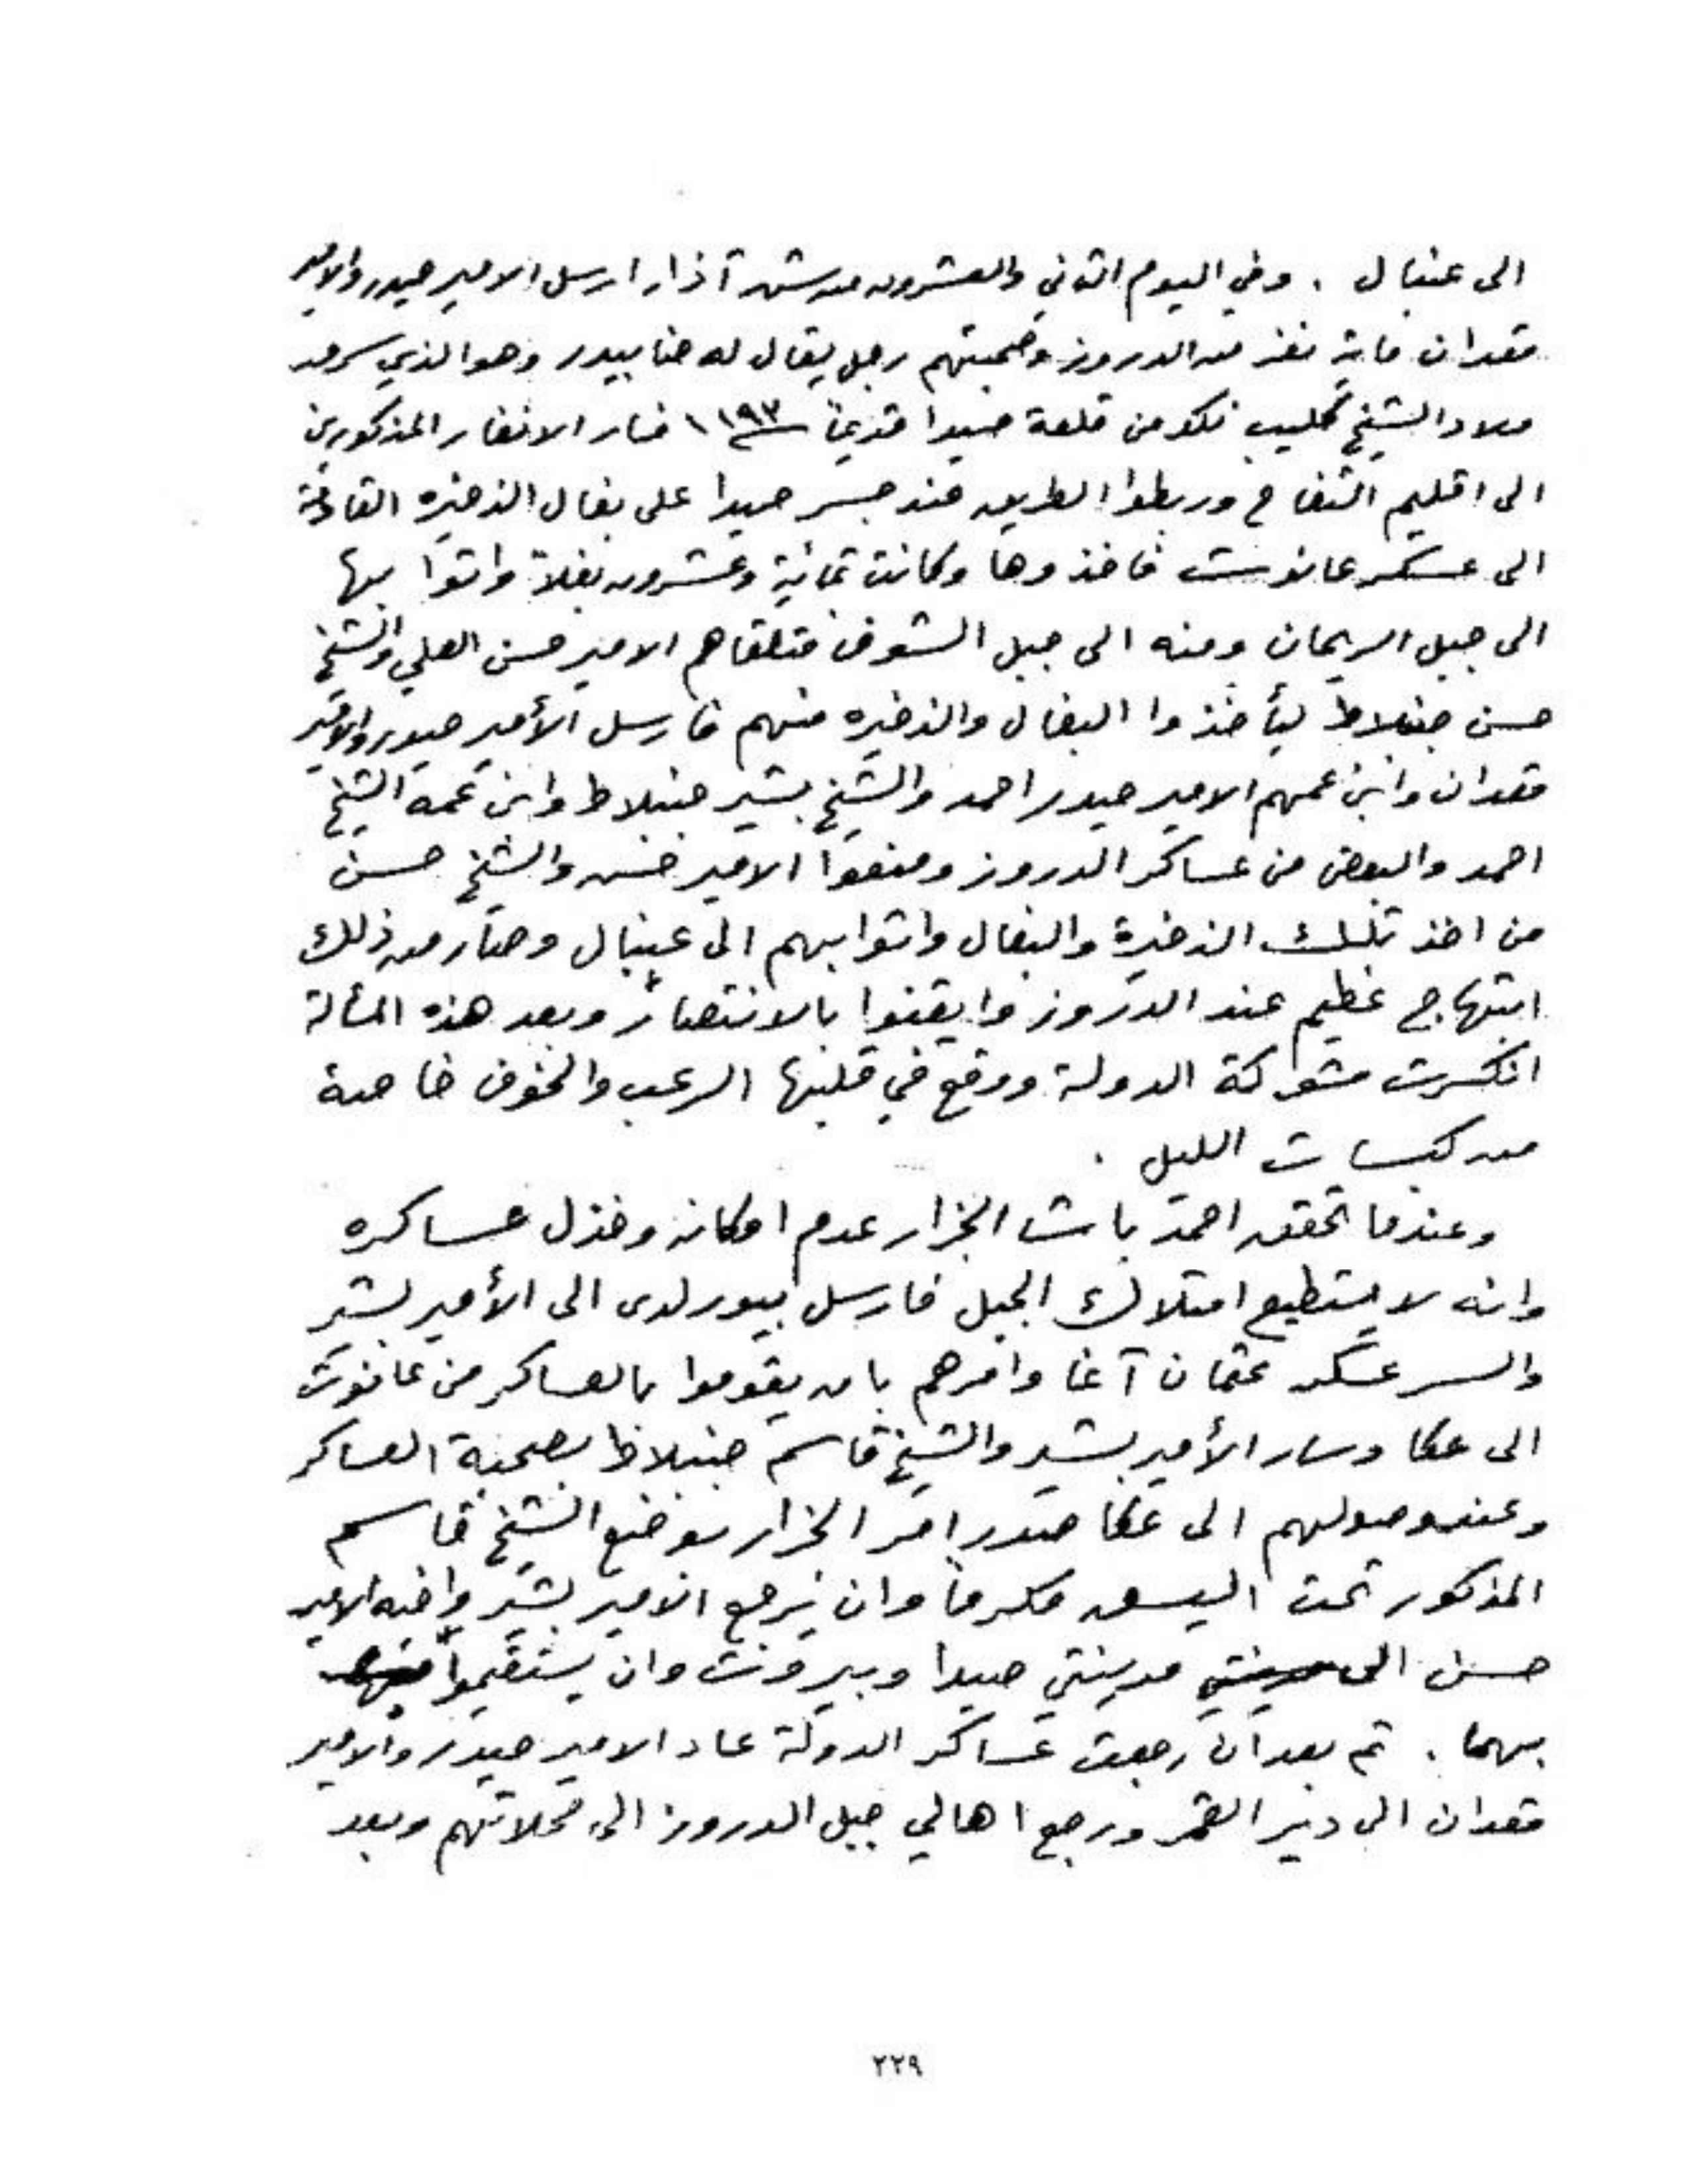 الى عنبال . وفي اليوم الثاني والعشرون من شهر آذار ارسل الامير حيدر والامير
قعدان ماية نفر من الدروز وصحبتهم رجل يقال له حنا بيدر وهو الذي سرق
ملاد الشيخ كليب نكد من قلعة صيدا قديماً سنة ١١٩٣ فسار الانفار المذكورين
الى اقليم التفاح وربطوا الطريق عند جسر صيدا على بغال الذخيره القادمة
الى عسكر عانوت فاخذوها وكانت ثمانية وعشرون بغلاً واتوا بها
الى جبل الريحان ومنه الى جبل الشوف فتلقاهم الامير حسن العلي والشيخ
حسن جنبلاط ليأخذوا البغال والذخيره منهم فارسل الأمير حيدر والامير
قعدان وابن عمهم الامير حيدر احمد والشيخ بشير جنبلاط وابن عمه الشيخ
احمد والبعض من عساكر الدروز ومنعوا الامير حسن والشيخ حسن
من اخذ تلك الذخيرة والبغال واتوا بهم الى عينبال وصار من ذلك
ابتهاج عظيم عند الدروز وايقنوا بالانتصار وبعد هذه المسألة
انكسرت شوكة الدولة ووقع في قلبها الرعب والخوف خاصة
من كبسات الليل .
وعندما تحقق احمد باشا الجزار عدم امكانه وخذل عساكره
وانه لا يستطيع امتلاك الجبل فارسل بيورلدى الى الأمير بشير
والسر عسكر عثمان آغا وامرهم بان يقوموا بالعساكر من عانوت
الى عكا وسار الأمير بشير والشيخ قاسم جنبلاط بصحبة العساكر
وعند وصولهم الى عكا صدر امر الجزار بوضع الشيخ قاسم
المذكور تحت اليسق مكرماً وان يرجع الامير بشير واخيه الامير
حسن الى مدينتي مدينتي صيدا وبيروت وان يستقيموا فيها
بهما . ثم بعد ان رجعت عساكر الدولة عاد الامير حيدر والامير
قعدان الى دير القمر ورجع اهالي جبل الدروز الى محلاتهم وبعد
٢٢٩